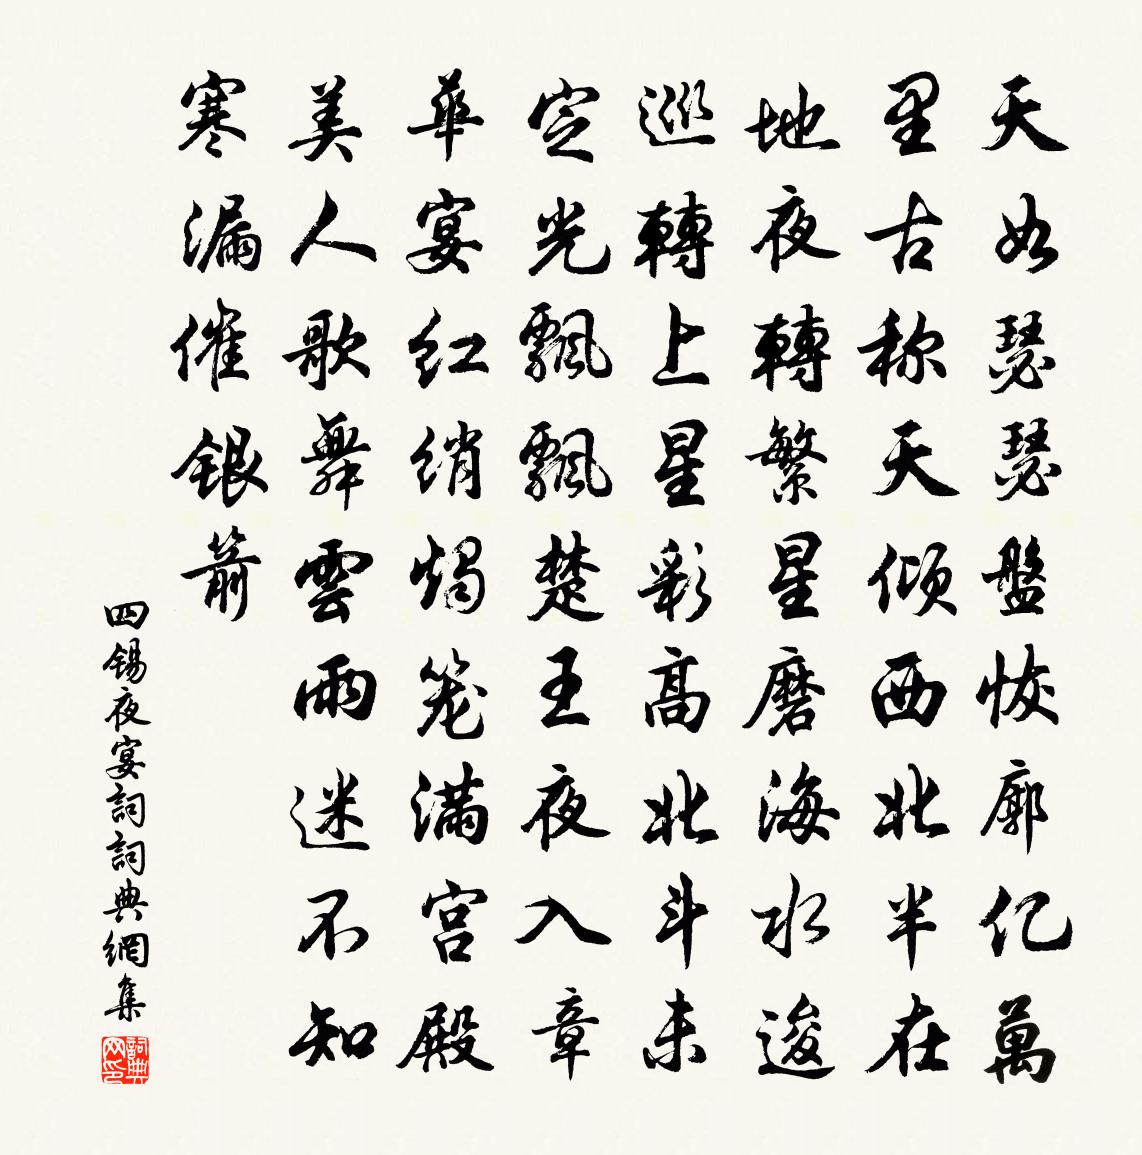 天如瑟瑟盤恢廓亿萬
里古称天倾西北半在
地夜轉繁星磨海水逡
巡轉上星彩高北斗未
定光飄飄楚王夜入章
華宴红绡燭笼满宫殿
美人歌舞雲雨迷不知
寒漏催銀箭
四锡夜宴詞詞典網集
詞典网印